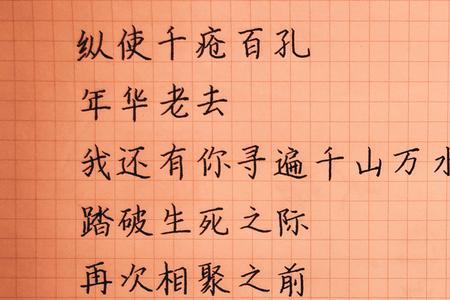 纵使千疮百孔
年华老去
我还有你寻遍千山万水
踏破生死之际
再次相聚之前